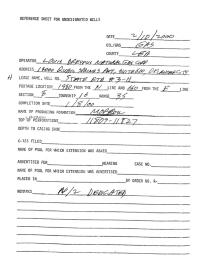 REFERENCE SHEET FOR UNDESIGNATED WELLS
DATE 2/10/2000
OIL/GAS GAS
COUNTY LEA
OPERATOR LOUIS DREYFUS NATURAL GAS CORP
ADDRESS 14000 QUAIL SPRINGS
LEASE NAME, WELL NO. STATE
FOOTAGE LOCATION 1980 FROM THE N LINE AND 660 FROM THE E LINE
SECTION TOWNSHIP RANGE 35
COMPLETION DATE 1/8/00
NAME OF PRODUCING FORMATION MORROW
TOP OF PERFORATIONS 11809-11827
DEPTH TO CASING SHOE
C-123 FILED
NAME OF POOL FOR WHICH EXTENSION WAS ASKED
ADVERTISED FOR HEARING CASE NO.
NAME OF POOL FOR WHICH EXTENSION WAS ADVERTISED
PLACED IN BY ORDER NO. R-
REMARKS N/2 DEDICATED